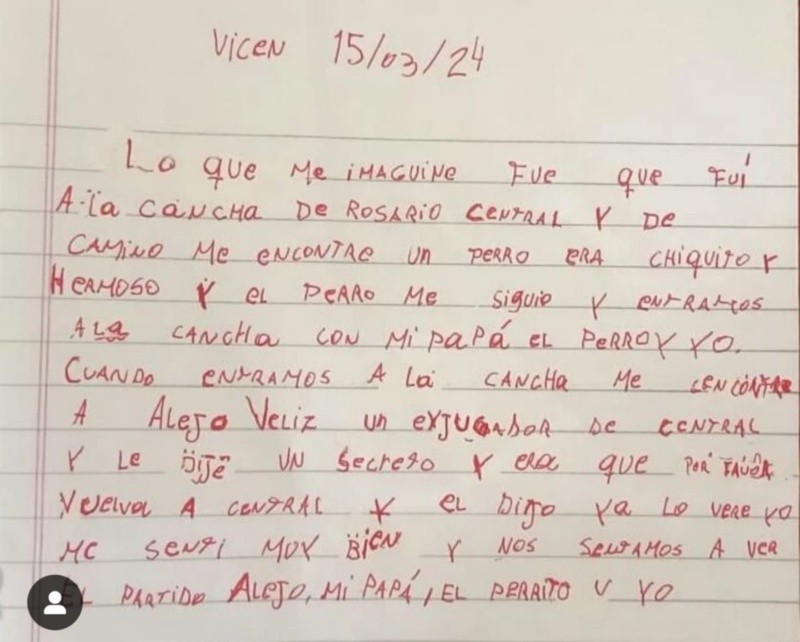 VICEN 15/03/24
Lo que me IMAGUINE FUE que FUÍ
A la CANCHA DE ROSARIO CENTRAL Y DE
CAMINO Me ENCONTRE UN PERRO ERA CHIQUITO Y
HERMOSO Y el PERRO Me siguio Y entramos
A la CANCHA CON Mi PaPÁ EL PERRO Y YO.
CUANDO ENTRAMOS A La CANCHA Me
A Alejo Veliz un exjugador DE CENTRAL
Y Le DIJE UN Secreto Y era que POR FAVOR
Vuelva A CENTRAL Y el Dijo Ya lo vere yo
Me SENTI MUY BIEN Y NOS SENTAMOS A VER
EL PARTIDO ALEJO, Mi PAPÁ, EL PERRITO Y YO